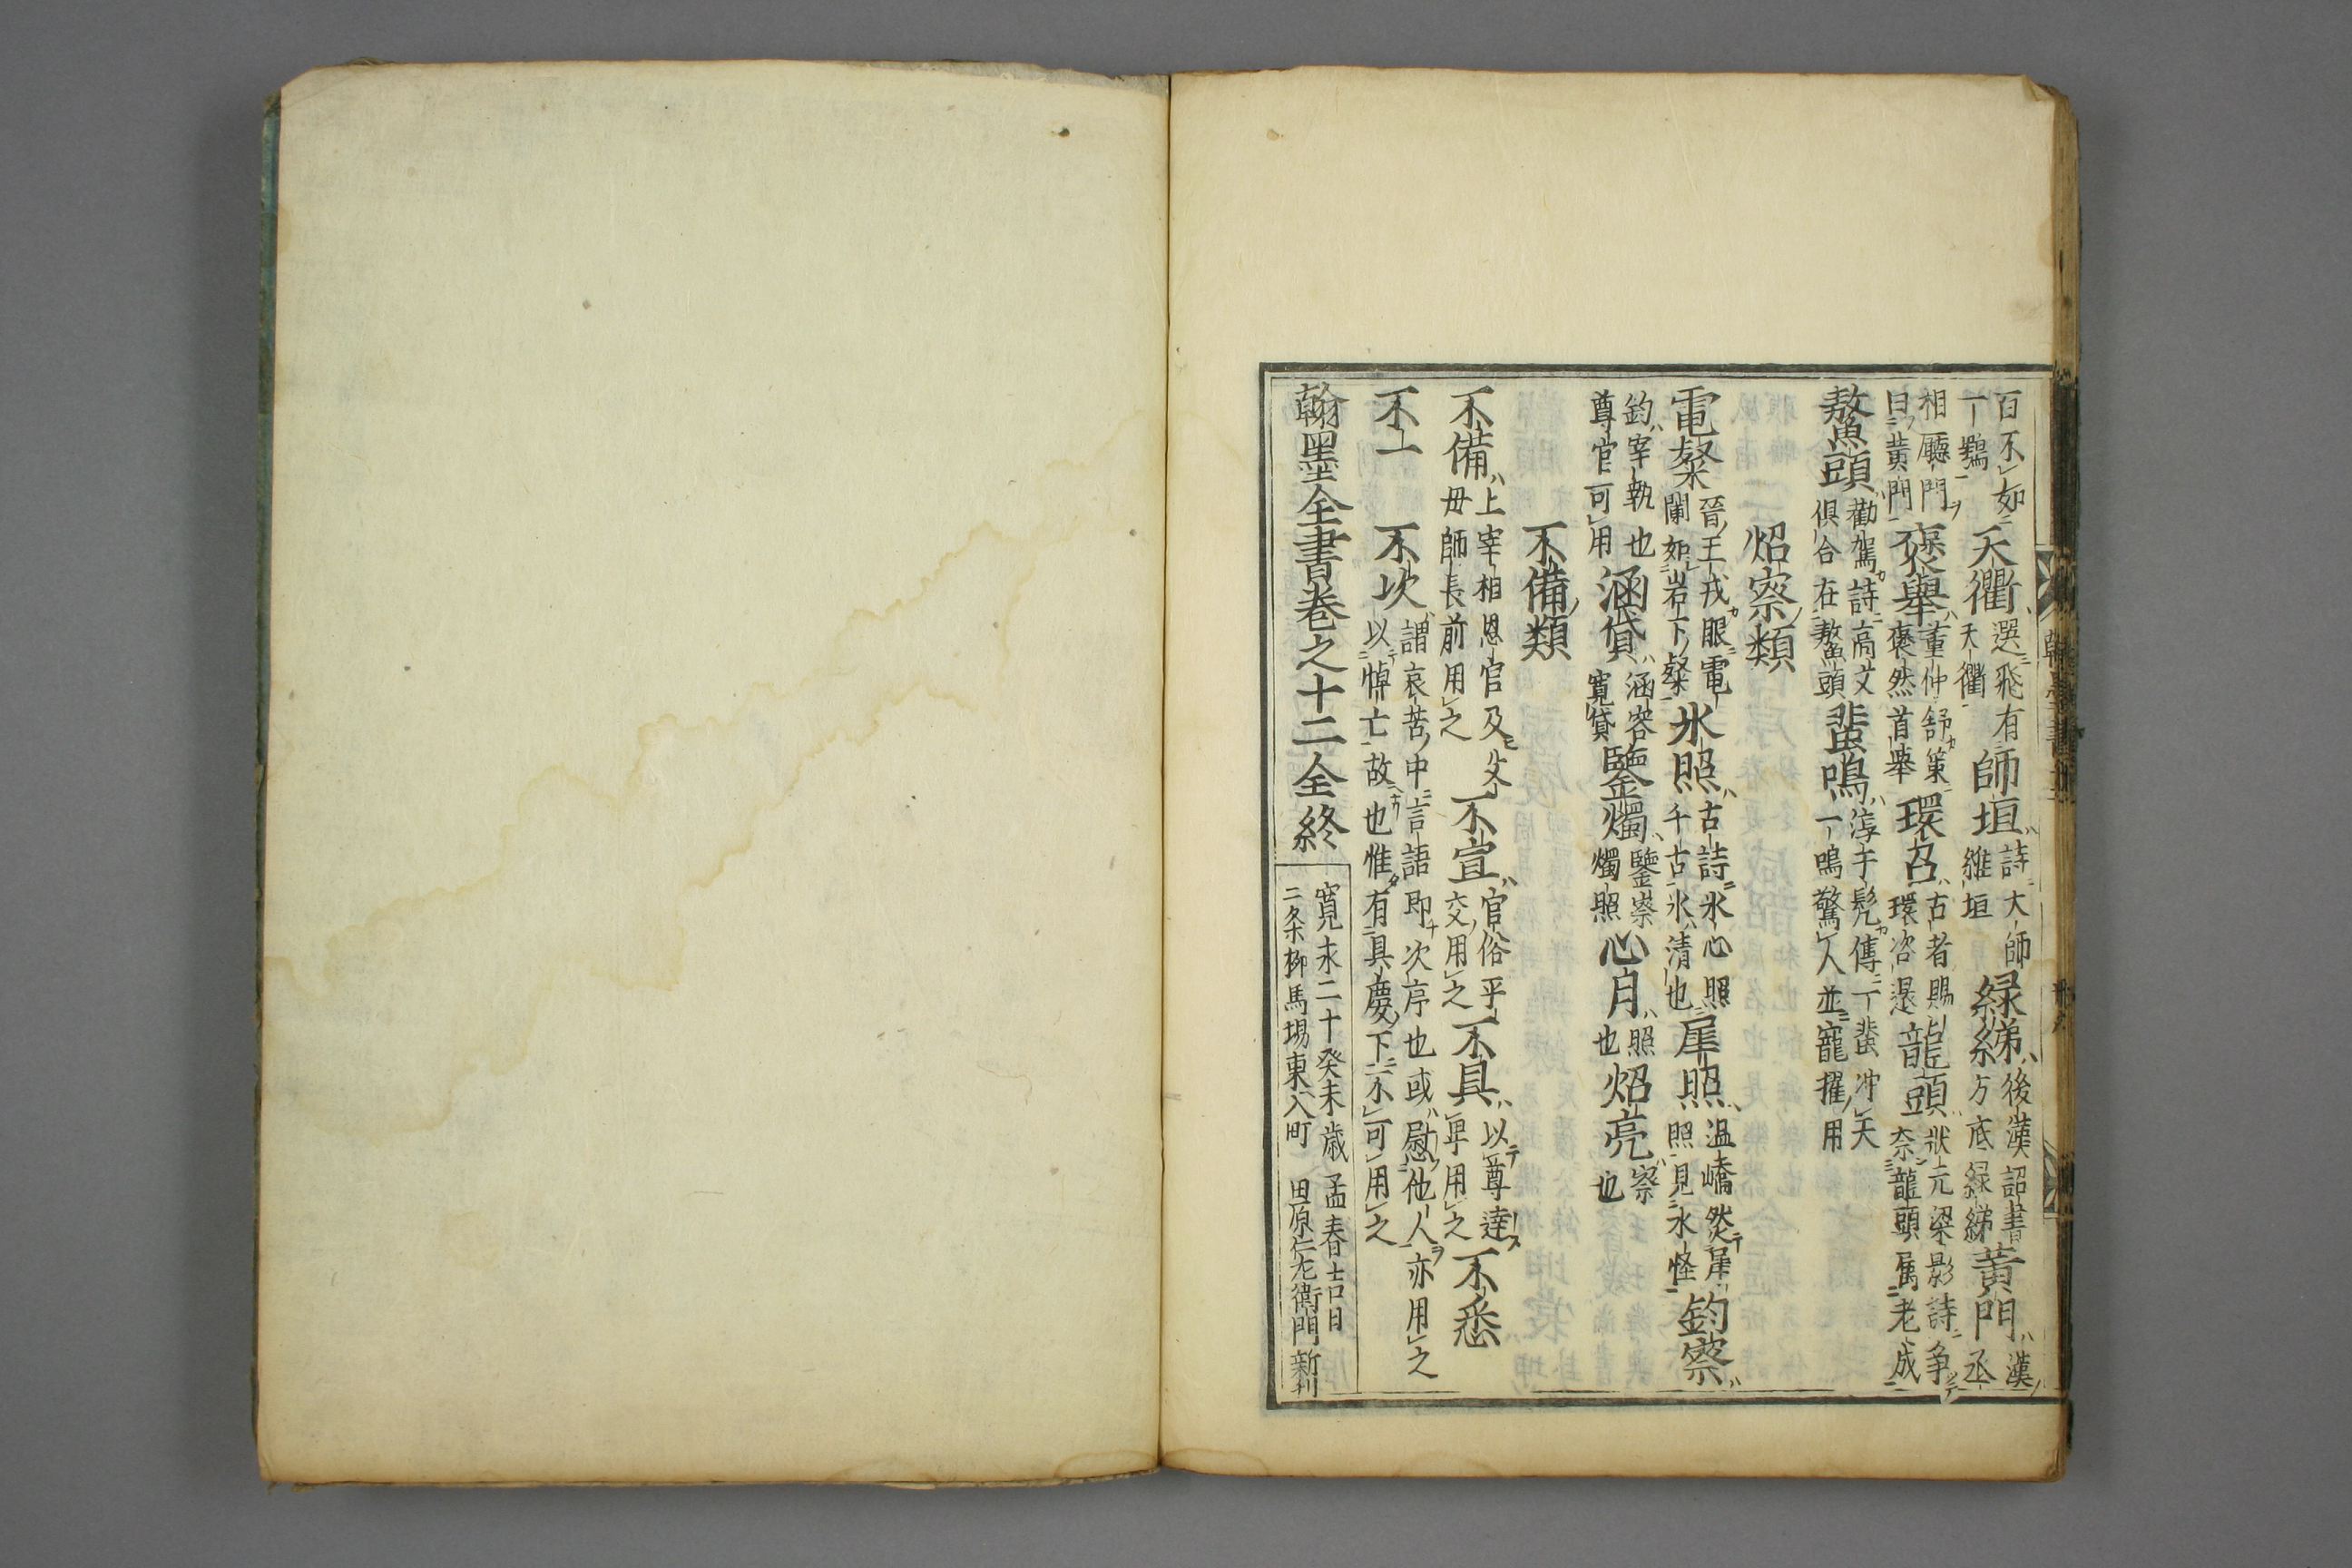 百不如一鶚 天衢選飛有天衢 師垣詩大師維垣 緑綈後漢詔書方底緑綈 黄門漢丞
相廳門曰黄門 褒舉董仲舒策褒然首舉 環召古者賜環召還 龍頭状元梁影詩争奈龍頭属老成
鰲頭勸駕詩高文俱合在鰲頭 蜚鳴淳于髠傳一蜚沖天一鳴驚人並寵擢用
炤察類
電粲晉王戎眼電爛如岩下粲 氷照古詩氷心照千古氷清也 犀照温嶠然犀照見水怪 鈞察
鈞宰執也尊官可用 涵貸涵容寛貸 鑒燭鑒察燭照 心月照也 炤亮察也
不備類
不備上宰相恩官及父母師長前用之 不宣官俗平交用之 不具以尊達卑用之 不悉
不一 不次謂哀苦中言語即次序也或慰他人亦用之以悼亡故也惟有具慶下不可用之
翰墨全書巻之十二全終
寛永二十癸未歳孟春吉日
二条柳馬場東入町 田原仁左衛門新刊